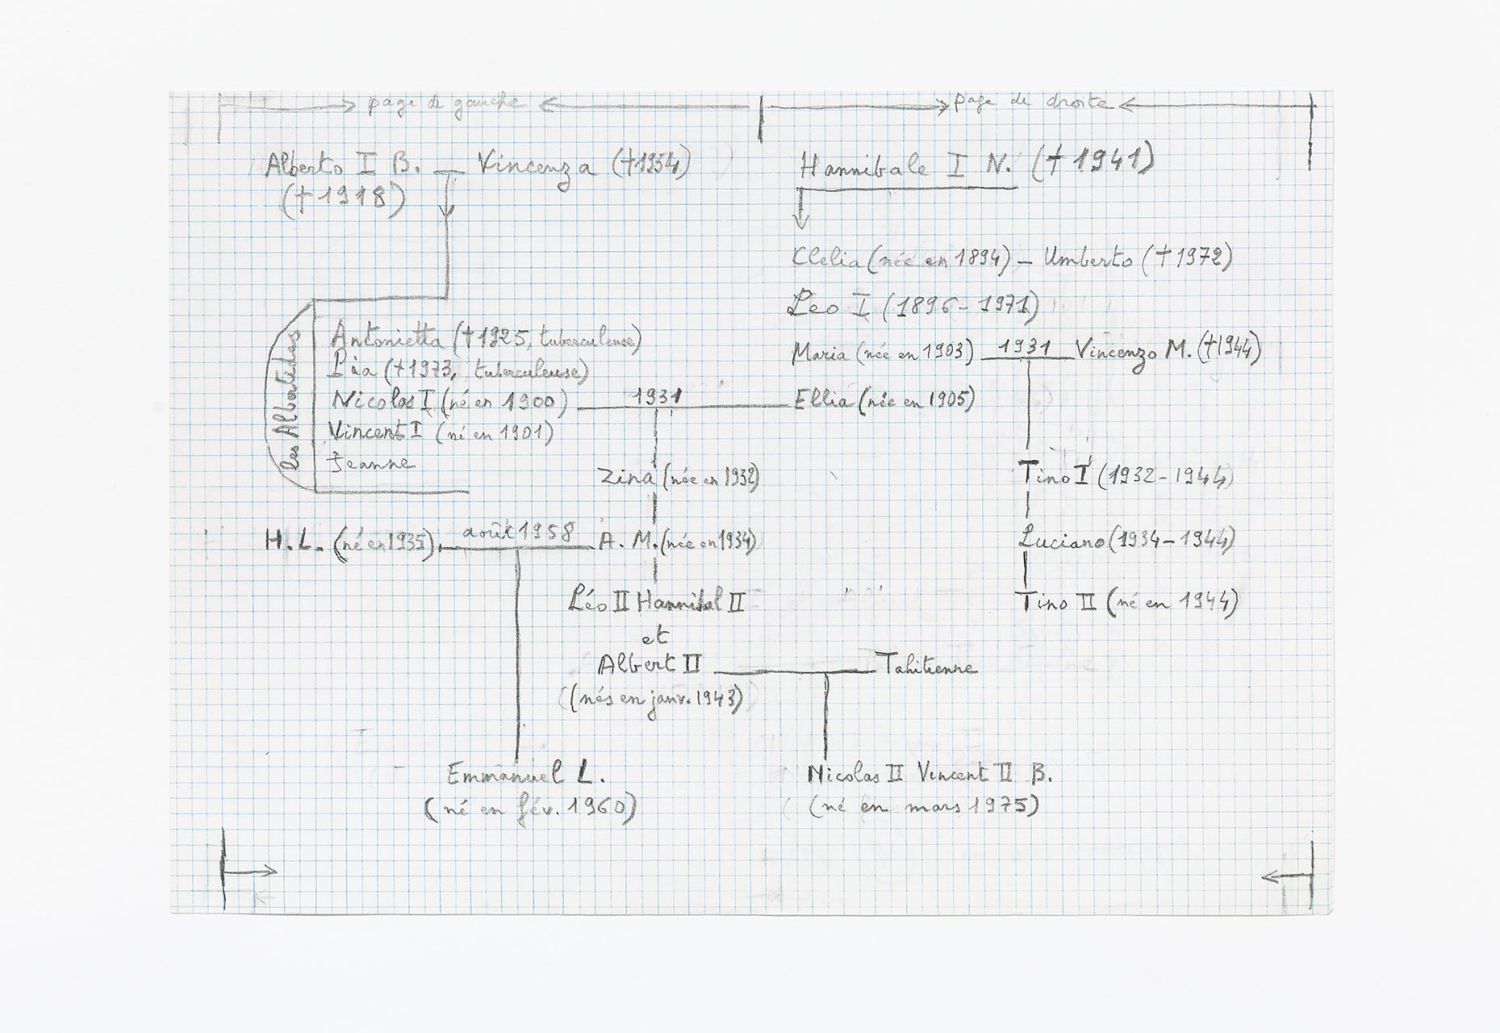 page de gauche page de droite
Alberto I B. — Vincenza (†1954) Hannibale I N. (†1941)
(†1918)
Clelia (née en 1894) – Umberto (†1972)
Léo I (1896-1971)
les Albertides
Antonietta (†1925, tuberculeuse)
Maria (née en 1903) 1931 Vincenzo M. (†1944)
Pia (†1973, tuberculeuse)
Nicolas I (né en 1900) 1931 Ellia (née en 1905)
Vincent I (né en 1901)
Jeanne
Zina (née en 1932) Tino I (1932-1944)
H. L. (né en 1935) août 1958 A. M. (née en 1934) Luciano (1934-1944)
Léo II Hannibal II Tino II (né en 1944)
et
Albert II Tahitienne
(nés en janv. 1943)
Emmanuel L. Nicolas II Vincent II B.
(né en fév. 1960) (né en mars 1975)